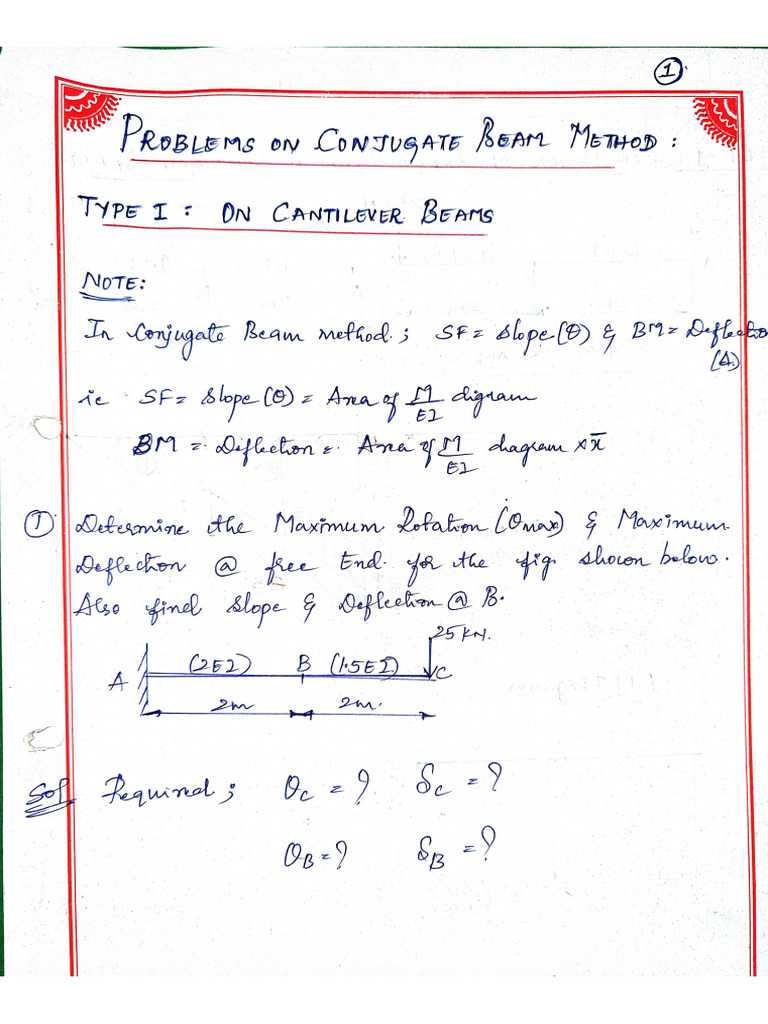 1
PROBLEMS ON CONJUGATE BEAM METHOD :
TYPE I : ON CANTILEVER BEAMS
NOTE:
In Conjugate Beam method ; SF = Slope (θ) & BM = Deflectio
(Δ)
ie SF = Slope (θ) = Area of M/EI digram
BM = Deflection = Area of M/EI diagram × x̄
① Determine the Maximum Rotation (θmax) & Maximum
Deflection @ free End for the fig shown below.
Also find Slope & Deflection @ B.
25 KN.
A (2EI) B (1.5EI) C
2m 2m.
Sol Required ; θc = ? δc = ?
θB = ? δB = ?